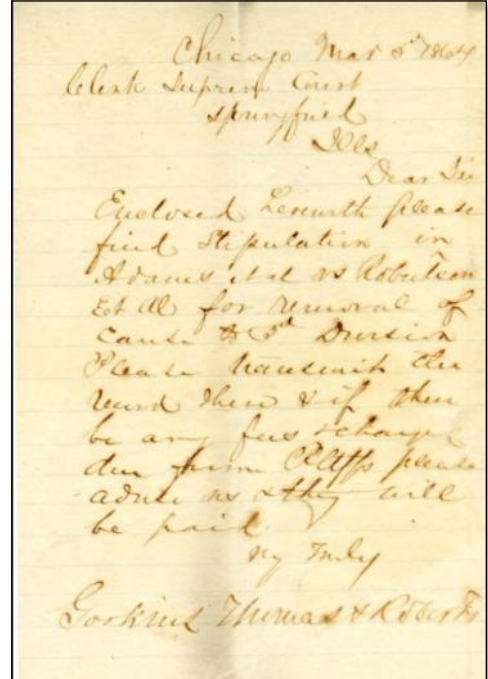 Chicago Mar 5th
Clerk Supreme Court
Springfield
Ills
Dear Sir
Enclosed herewith please
find Stipulation in
Adams et al vs Robertson
Et Al for removal of
cause to 3d Division
Please transmit the
record there & if there
be any fees & charges
due from Plffs please
advise us & they will
be paid
Vy Truly
Gookins Thomas & Roberts